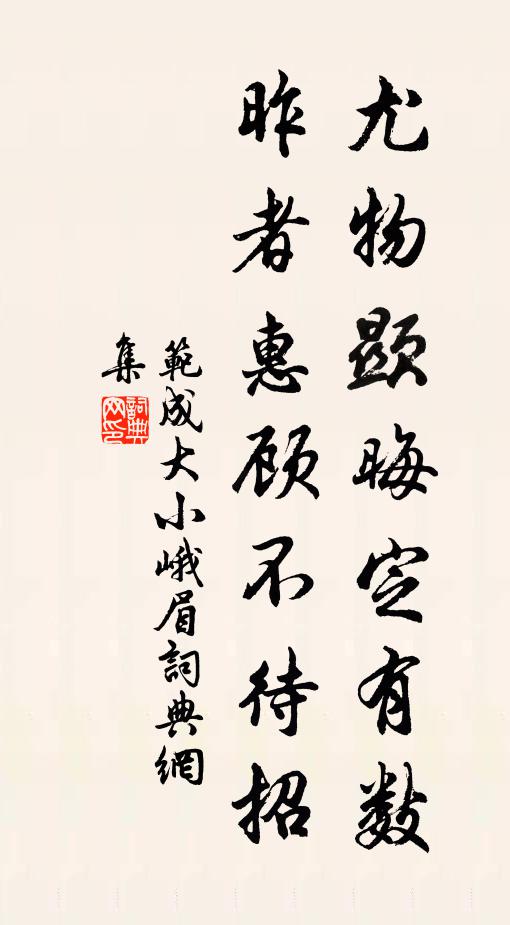 尤物顯晦定有數
昨者惠顧不待招
範成大小峨眉詞典網
集
詞典
网印